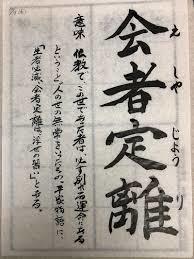 会者定離
えしゃじょうり
意味
仏教で、この世であった者は、必ず別れる運命にある
という。人の世の無常をいったもの。平家物語に、
「生者必滅、会者定離は浮世の習い」とある。